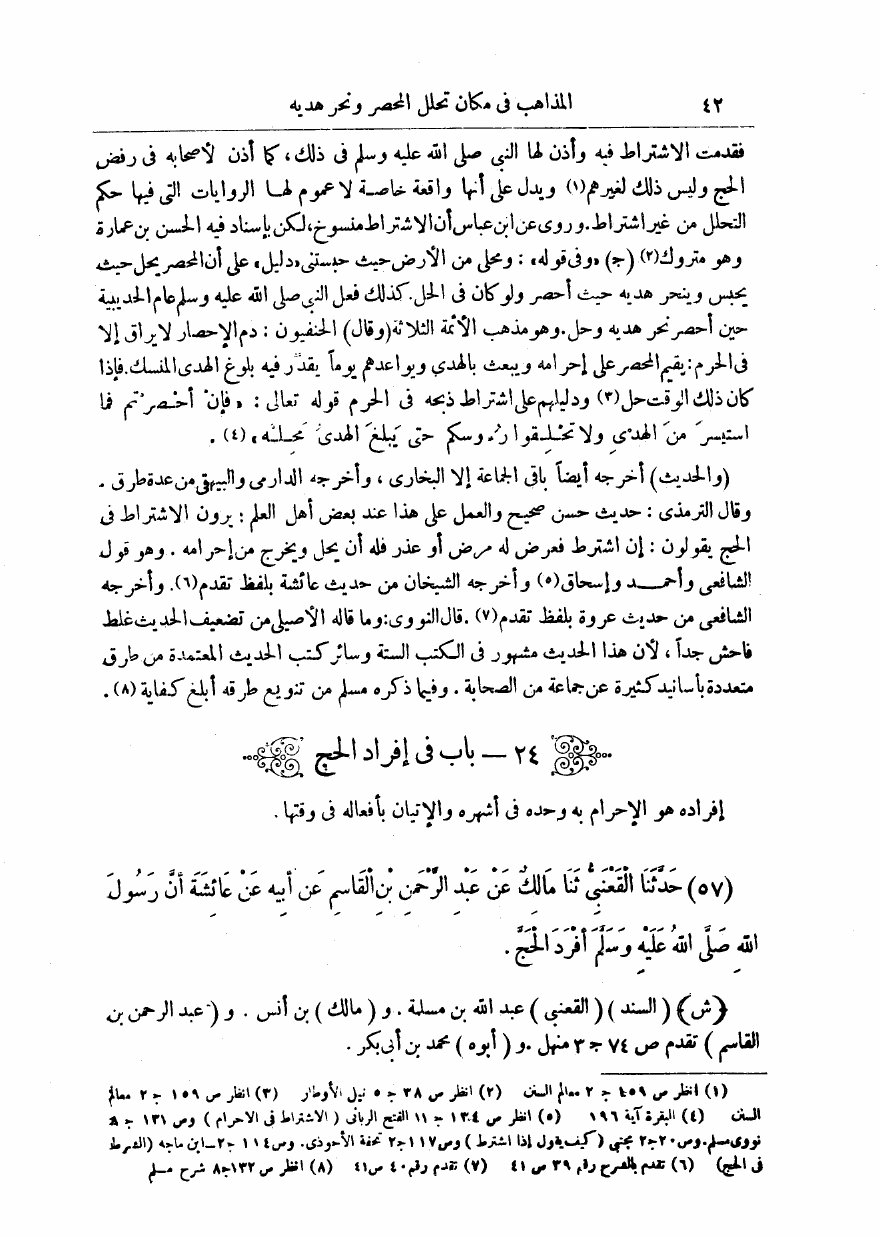 ٤٢ المذاهب فى مكان تحلل المحصر ونحر هديه
فقدمت الاشتراط فيه وأذن لها النبى صلى الله عليه وسلم فى ذلك، كما أذن لأصحابه فى رفض
الحج وليس ذلك لغيرهم(١) ويدل على أنها واقعة خاصة لا عموم لها الروايات التى فيها حكم
التحلل من غير اشتراط. وروى عن ابن عباس أن الاشتراط منسوخ، لكن بإسناد فيه الحسن بن عمارة
وهو متروك(٢) (ج) «وفى قوله» : ومحلى من الأرض حيث حبستنى «دليل» على أن المحصر يحل حيث
يحبس وينحر هديه حيث أحصر ولو كان فى الحل. كذلك فعل النبى صلى الله عليه وسلم عام الحديبية
حين أحصر نحر هديه وحل. وهو مذهب الأئمة الثلاثة (وقال) الحنفيون : دم الإحصار لا يراق إلا
فى الحرم : يقيم المحصر على إحرامه ويبعث بالهدى ويواعدهم يوماً يقدَّر فيه بلوغ الهدى المنسك. فإذا
كان ذلك الوقت حل(٣) ودليلهم على اشتراط ذبحه فى الحرم قوله تعالى : « فإنْ أحْصرْتم فما
استيسرَ منَ الهدْىِ ولا تحْلِقوا رُءوسكم حتى يَبلغَ الهدىُ مَحِلَّه » (٤) .
(والحديث) أخرجه أيضاً باقى الجماعة إلا البخارى ، وأخرجه الدارمى والبيهقى من عدة طرق .
وقال الترمذى : حديث حسن صحيح والعمل على هذا عند بعض أهل العلم : يرون الاشتراط فى
الحج يقولون : إن اشترط فعرض له مرض أو عذر فله أن يحل ويخرج من إحرامه . وهو قول
الشافعى وأحمد وإسحاق(٥) وأخرجه الشيخان من حديث عائشة بلفظ تقدم(٦). وأخرجه
الشافعى من حديث عروة بلفظ تقدم(٧) . قال النووى: وما قاله الأصيلى من تضعيف الحديث غلط
فاحش جداً ، لأن هذا الحديث مشهور فى الكتب الستة وسائر كتب الحديث المعتمدة من طرق
متعددة بأسانيد كثيرة عن جماعة من الصحابة . وفيما ذكره مسلم من تنويع طرقه أبلغ كفاية (٨) .
٢٤ — باب فى إفراد الحج
إفراده هو الإحرام به وحده فى أشهره والإتيان بأفعاله فى وقتها .
(٥٧) حَدَّثَنَا الْقَعْنَبِىُّ ثَنَا مَالِكٌ عَنْ عَبْدِ الرَّحْمَنِ بْنِ الْقَاسِمِ عَنْ أَبِيهِ عَنْ عَائِشَةَ أَنَّ رَسُولَ
اللهِ صَلَّى اللهُ عَلَيْهِ وَسَلَّمَ أَفْرَدَ الْحَجَّ .
(ش) (السند) (القعنبى) عبد الله بن مسلمة . و (مالك) بن أنس . و (عبد الرحمن بن
القاسم) تقدم ص ٧٤ ج ٣ منهل . و (أبوه) محمد بن أبى بكر .
(١) انظر ص ١٥٩ ج ٢ معالم السنن (٢) انظر ص ٣٨ ج ٥ نيل الأوطار (٣) انظر ص ١٥٩ ج ٢ معالم
السنن (٤) البقرة آية ١٩٦ (٥) انظر ص ١٣٠٤ ج ١١ الفتح الربانى (الاشتراط فى الاحرام) وص ١٣١ ج ٨
نووى مسلم. وص ٢٠ ج ٢ مجتبى (كيف يقول إذا اشترط) وص ١١٧ ج ٢ تحفة الأحوذى. وص ١١٤ ج ٢ – ابن ماجه (الشرط
فى الحج) (٦) تقدم بالشرح رقم ٣٩ ص ٤١ (٧) تقدم رقم ٤٠ ص ٤١ (٨) انظر ص ١٣٢ ج ٨ شرح مسلم